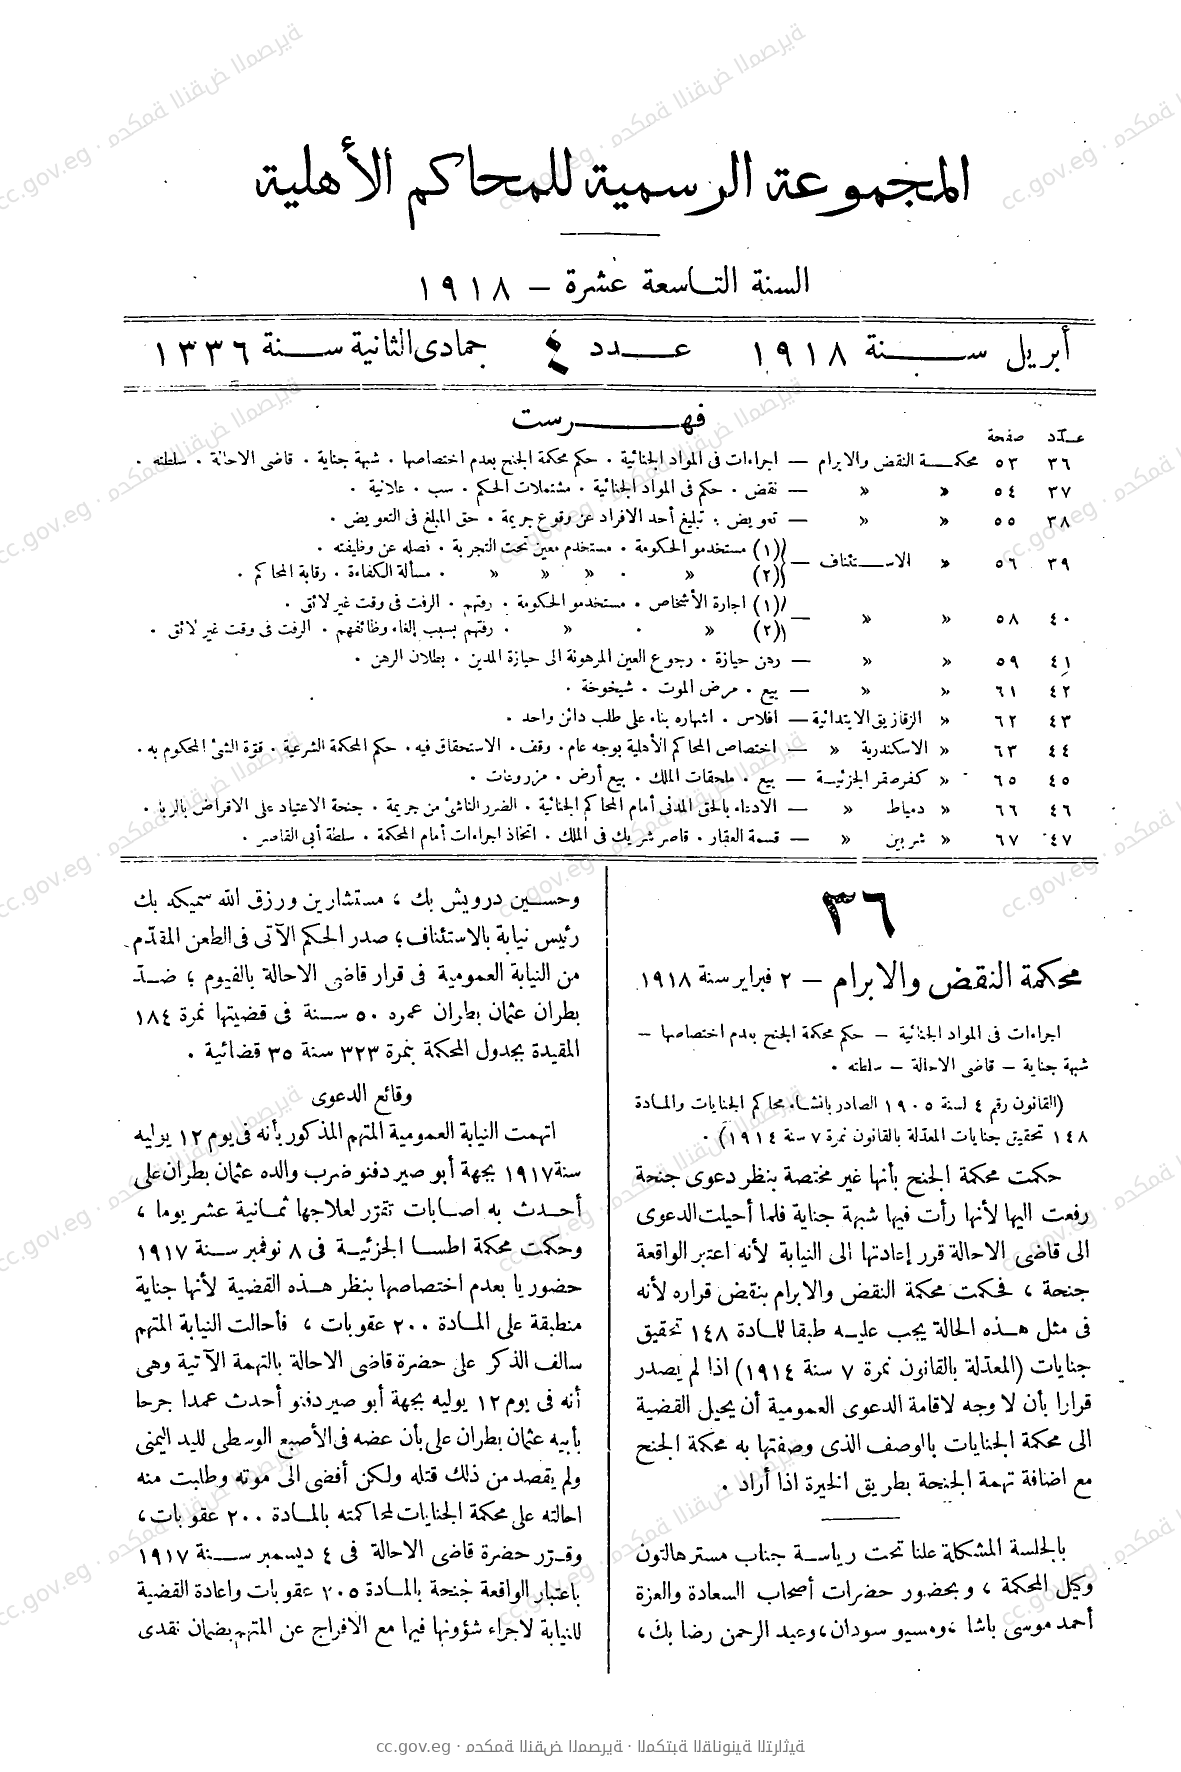 المجموعة الرسمية للمحاكم الأهلية
السنة التاسعة عشرة — ١٩١٨
أبريل سنة ١٩١٨ عدد ٤ جمادى الثانية سنة ١٣٣٦
فهرست
عدد صفحة
٣٦ ٥٣ محكمة النقض والابرام — اجراءات فى المواد الجنائية . حكم محكمة الجنح بعدم اختصاصها . شبهة جناية . قاضى الاحالة . سلطته .
٣٧ ٥٤ » » — نقض . حكم فى المواد الجنائية . مشتملات الحكم . سب . علانية .
٣٨ ٥٥ » » — تعويض . تبليغ أحد الافراد عن وقوع جريمة . حق المبلغ فى التعويض .
٣٩ ٥٦ » الاستئناف — (١) مستخدمو الحكومة . مستخدم معين تحت التجربة . فصله عن وظيفته .
(٢) » . » » » . مسألة الكفاءة . رقابة المحاكم .
٤٠ ٥٨ » » — (١) اجارة الأشخاص . مستخدمو الحكومة . رفتهم . الرفت فى وقت غير لائق .
(٢) » . » . رفتهم بسبب إلغاء وظائفهم . الرفت فى وقت غير لائق .
٤١ ٥٩ » » — رهن حيازة . رجوع العين المرهونة الى حيازة المدين . بطلان الرهن .
٤٢ ٦١ » » — بيع . مرض الموت . شيخوخة .
٤٣ ٦٢ » الزقازيق الابتدائية — افلاس . اشهاره بناء على طلب دائن واحد .
٤٤ ٦٣ » الاسكندرية » — اختصاص المحاكم الأهلية بوجه عام . وقف . الاستحقاق فيه . حكم المحكمة الشرعية . قوّة الشئ المحكوم به .
٤٥ ٦٥ » كفر صقر الجزئية — بيع . ملحقات الملك . بيع أرض . مزروعات .
٤٦ ٦٦ » دمياط » — الادعاء بالحق المدنى أمام المحاكم الجنائية . الضرر الناشئ من جريمة . جنحة الاعتياد على الاقراض بالربا .
٤٧ ٦٧ » شربين » — قسمة العقار . قاصر شريك فى الملك . اتخاذ اجراءات أمام المحكمة . سلطة أبى القاصر .
٣٦
محكمة النقض والابرام — ٢ فبراير سنة ١٩١٨
اجراءات فى المواد الجنائية — حكم محكمة الجنح بعدم اختصاصها —
شبهة جناية — قاضى الاحالة — سلطته .
(القانون رقم ٤ لسنة ١٩٠٥ الصادر بانشاء محاكم الجنايات والمادة
١٤٨ تحقيق جنايات المعدّلة بالقانون نمرة ٧ سنة ١٩١٤) .
حكمت محكمة الجنح بأنها غير مختصة بنظر دعوى جنحة
رفعت اليها لأنها رأت فيها شبهة جناية فلما أحيلت الدعوى
الى قاضى الاحالة قرر إعادتها الى النيابة لأنه اعتبر الواقعة
جنحة ، فحكمت محكمة النقض والابرام بنقض قراره لأنه
فى مثل هذه الحالة يجب عليه طبقا للمادة ١٤٨ تحقيق
جنايات (المعدّلة بالقانون نمرة ٧ سنة ١٩١٤) اذا لم يصدر
قرارا بأن لا وجه لاقامة الدعوى العمومية أن يحيل القضية
الى محكمة الجنايات بالوصف الذى وصفتها به محكمة الجنح
مع اضافة تهمة الجنحة بطريق الخيرة اذا أراد .
بالجلسة المشكلة علنا تحت رياسة جناب مستر هالتون
وكيل المحكمة ، وبحضور حضرات أصحاب السعادة والعزة
أحمد موسى باشا ، ومسيو سودان ، وعبد الرحمن رضا بك ،
وحسين درويش بك ، مستشارين ورزق الله سميكه بك
رئيس نيابة بالاستئناف ؛ صدر الحكم الآتى فى الطعن المقدّم
من النيابة العمومية فى قرار قاضى الاحالة بالفيوم ؛ ضدّ
بطران عثمان بطران عمره ٥٠ سنة فى قضيتها نمرة ١٨٤
المقيدة بجدول المحكمة بنمرة ٣٢٣ سنة ٣٥ قضائية .
وقائع الدعوى
اتهمت النيابة العمومية المتهم المذكور بأنه فى يوم ١٢ يوليه
سنة ١٩١٧ بجهة أبو صير دفنو ضرب والده عثمان بطران على
أحدث به اصابات تقرّر لعلاجها ثمانية عشر يوما ،
وحكمت محكمة اطسا الجزئية فى ٨ نوفمبر سنة ١٩١٧
حضوريا بعدم اختصاصها بنظر هذه القضية لأنها جناية
منطبقة على المادة ٢٠٠ عقوبات ، فأحالت النيابة المتهم
سالف الذكر على حضرة قاضى الاحالة بالتهمة الآتية وهى
أنه فى يوم ١٢ يوليه بجهة أبو صير دفنو أحدث عمدا جرحا
بأبيه عثمان بطران على بأن عضه فى الأصبع الوسطى لليد اليمنى
ولم يقصد من ذلك قتله ولكن أفضى الى موته وطلبت منه
احالته على محكمة الجنايات لمحاكمته بالمادة ٢٠٠ عقوبات ،
وقرّر حضرة قاضى الاحالة فى ٤ ديسمبر سنة ١٩١٧
باعتبار الواقعة جنحة بالمادة ٢٠٥ عقوبات واعادة القضية
للنيابة لاجراء شؤونها فيها مع الافراج عن المتهم بضمان نقدى
cc.gov.eg · محكمة النقض المصرية · المكتبة القانونية التراثية